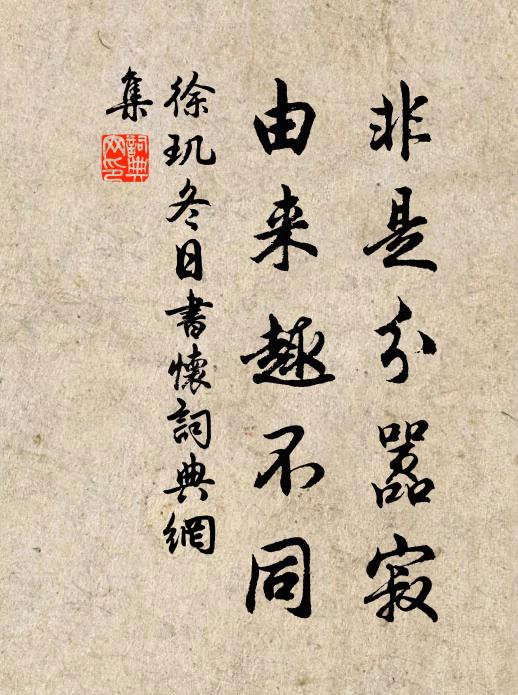 非是分嚣寂
由来趣不同
徐玑冬日書懷詞典網
集
詞典
网印